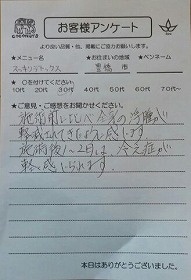 COCONUTS
お客様アンケート
より良い品質・他、掲載にご協力お願いします。
★メニュー名 ★お住まいの地域 ★ペンネーム
スッキリデトックス 豊橋 市
★○を付けてください。
10代 20代 30代 40代 50代 60代 70代 80代
★ご意見・ご感想をお聞かせください。
施術前に比べ全身の浮腫が
軽減されてきたように感じます
施術後1〜2日は、冷え症が
軽く感じられます。
本日はありがとうございました。